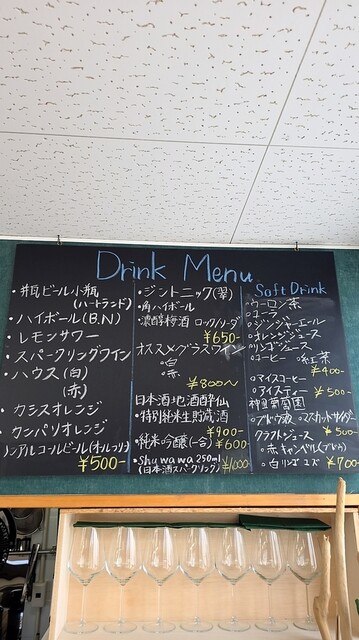 Drink Menu
・瓶ビール小瓶
(ハートランド)
・ハイボール(B.N)
・レモンサワー
・スパークリングワイン
・ハウス(白)
(赤)
・カシスオレンジ
・カンパリオレンジ
ノンアルコールビール(オールフリー)
¥500-
・ジントニック(翠)
・角ハイボール
・濃醇梅酒 ロック/ソーダ
¥650-
オススメグラスワイン
・白
・赤
¥800〜
日本酒 地酒酔仙
・特別純米生貯蔵酒
¥900-
・純米吟醸(一合) ¥600
・shuwawa 250ml
(日本酒スパークリング) ¥1000
Soft Drink
・ウーロン茶
○コーラ
○ジンジャーエール
○オレンジジュース
○リンゴジュース
○コーヒー ○紅茶
¥400-
○アイスコーヒー
○アイスティー ¥500-
神田葡萄園
○ブドウ液 ○マスカットサイダー
クラフトジュース ¥500-
○赤キャンベル(ブドウ)
○白リンゴ ユズ ¥700